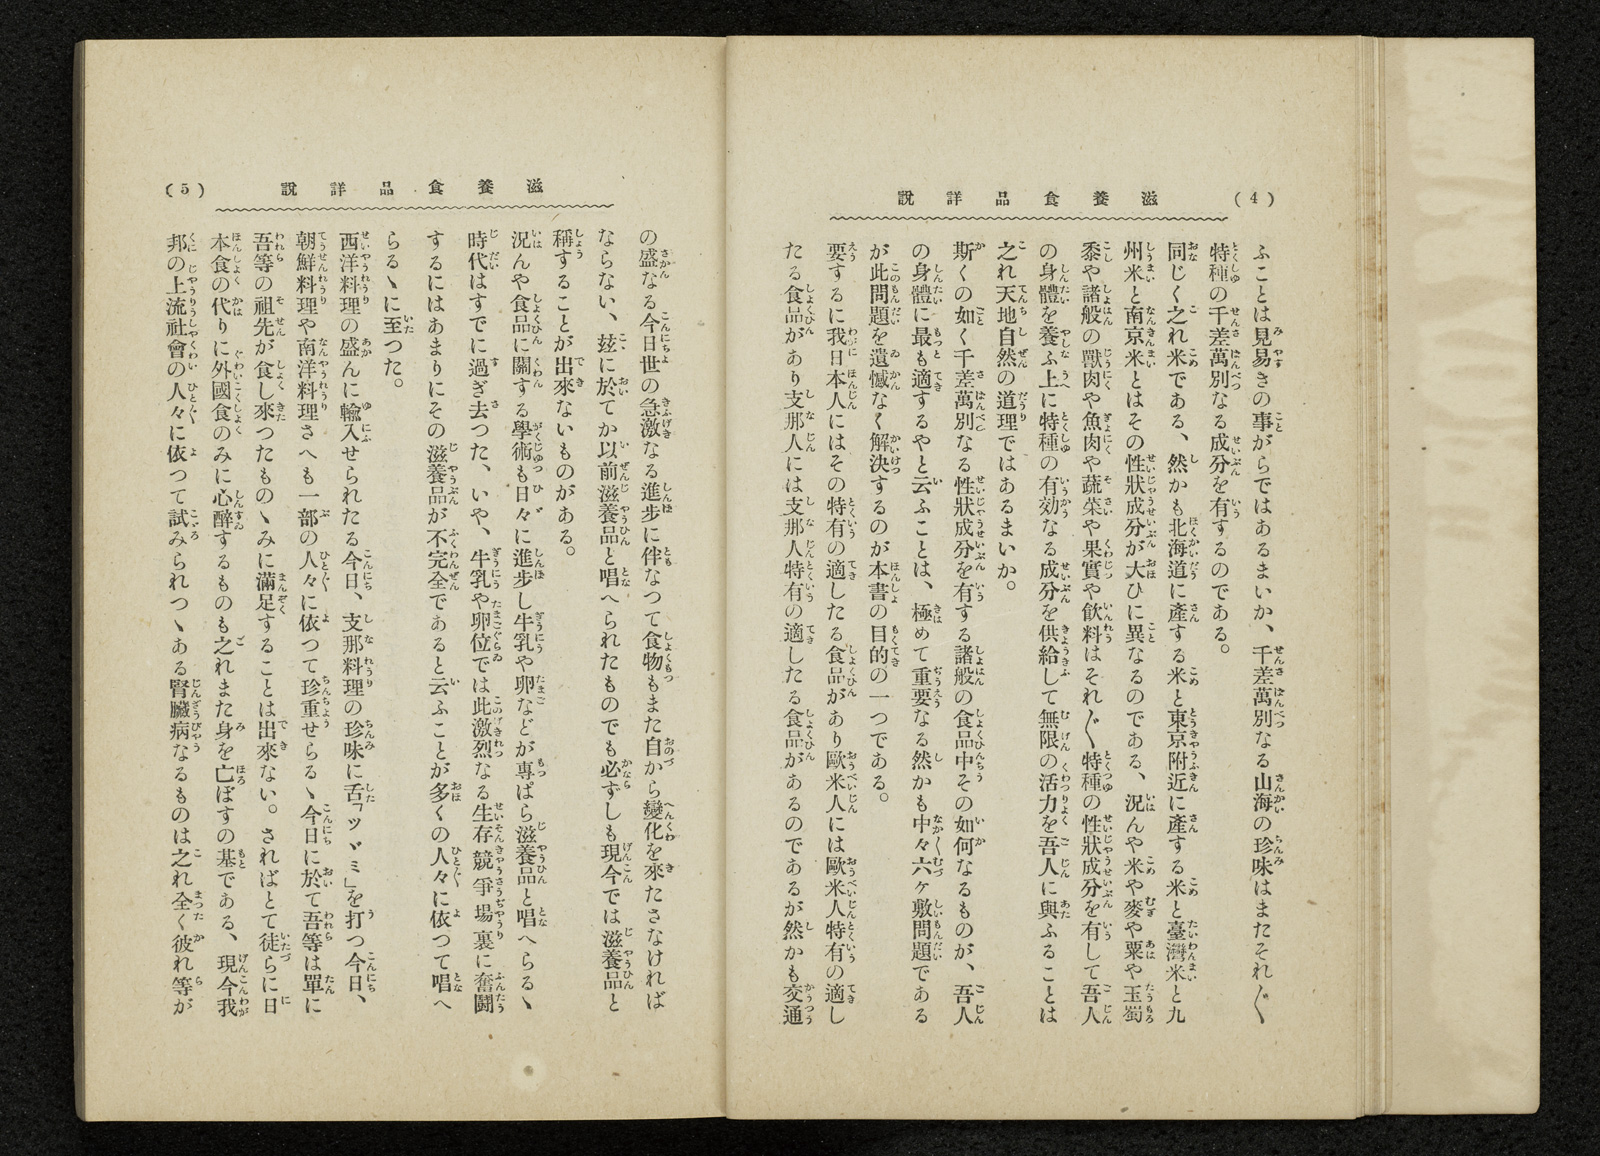 (4)
滋養食品詳説
ふことは見易きの事がらではあるまいか、千差萬別なる山海の珍味はまたそれ〴〵
特種の千差萬別なる成分を有するのである。
同じく之れ米である、然かも北海道に產する米と東京附近に產する米と臺灣米と九
州米と南京米とはその性狀成分が大ひに異なるのである、況んや米や麥や粟や玉蜀
黍や諸般の獸肉や魚肉や蔬菜や果實や飮料はそれ〴〵特種の性狀成分を有して吾人
の身體を養ふ上に特種の有効なる成分を供給して無限の活力を吾人に與ふることは
之れ天地自然の道理ではあるまいか。
斯くの如く千差萬別なる性狀成分を有する諸般の食品中その如何なるものが、吾人
の身體に最も適するやと云ふことは、極めて重要なる然かも中々六ヶ敷問題である
が此問題を遺憾なく解決するのが本書の目的の一つである。
要するに我日本人にはその特有の適したる食品があり歐米人には歐米人特有の適し
たる食品があり支那人には支那人特有の適したる食品があるのであるが然かも交通
(5)
滋養食品詳説
の盛なる今日世の急激なる進步に伴なつて食物もまた自から變化を來たさなければ
ならない、玆に於てか以前滋養品と唱へられたものでも必ずしも現今では滋養品と
稱することが出來ないものがある。
況んや食品に關する學術も日々に進步し牛乳や卵などが專ぱら滋養品と唱へらるゝ
時代はすでに過ぎ去つた、いや、牛乳や卵位では此激烈なる生存競爭場裏に奮鬪
するにはあまりにその滋養品が不完全であると云ふことが多くの人々に依つて唱へ
らるゝに至つた。
西洋料理の盛んに輸入せられたる今日、支那料理の珍味に舌「ツヾミ」を打つ今日、
朝鮮料理や南洋料理さへも一部の人々に依つて珍重せらるゝ今日に於て吾等は單に
吾等の祖先が食し來つたものゝみに滿足することは出來ない。さればとて徒らに日
本食の代りに外國食のみに心醉するものも之れまた身を亡ぼすの基である、現今我
邦の上流社會の人々に依つて試みられつゝある腎臟病なるものは之れ全く彼れ等が